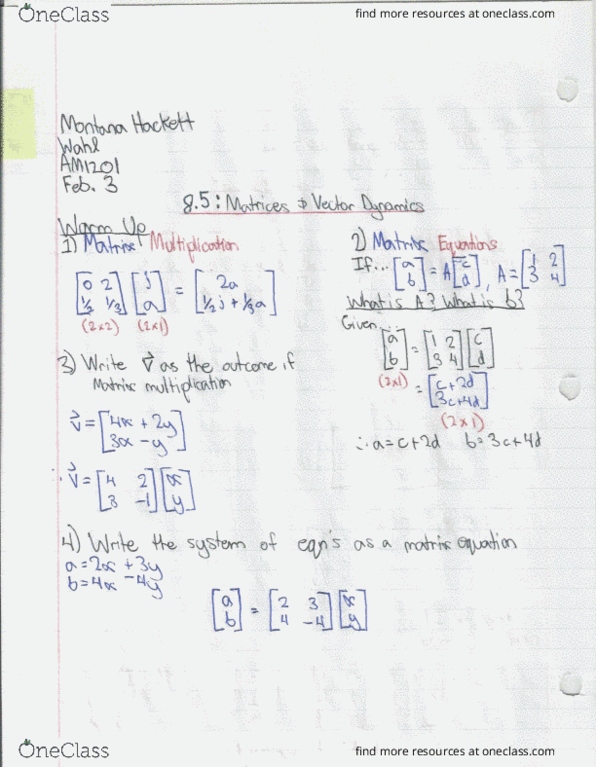 OneClass
find more resources at oneclass.com
Montana Hackett
Wahl
AM1201
Feb. 3
8.5: Matrices & Vector Dynamics
Warm Up
1) Matrix Multiplication
[0 2; 1/2 1/3] [j; a] = [2a; 1/2 j + 1/3 a]
(2x2) (2x1)
2) Matrix Equations
If... [a; b] = A[c; d], A = [1 2; 3 4]
What is A? What is b?
Given...
[a; b] = [1 2; 3 4] [c; d]
(2x1) = [c+2d; 3c+4d]
(2x1)
∴ a=c+2d b=3c+4d
3) Write v⃗ as the outcome if
Matrix multiplication
v⃗ = [4x + 2y; 3x - y]
∴ v⃗ = [4 2; 3 -1] [x; y]
4) Write the system of eqn's as a matrix equation
a = 2x + 3y
b = 4x - 4y
[a; b] = [2 3; 4 -4] [x; y]
OneClass
find more resources at oneclass.com